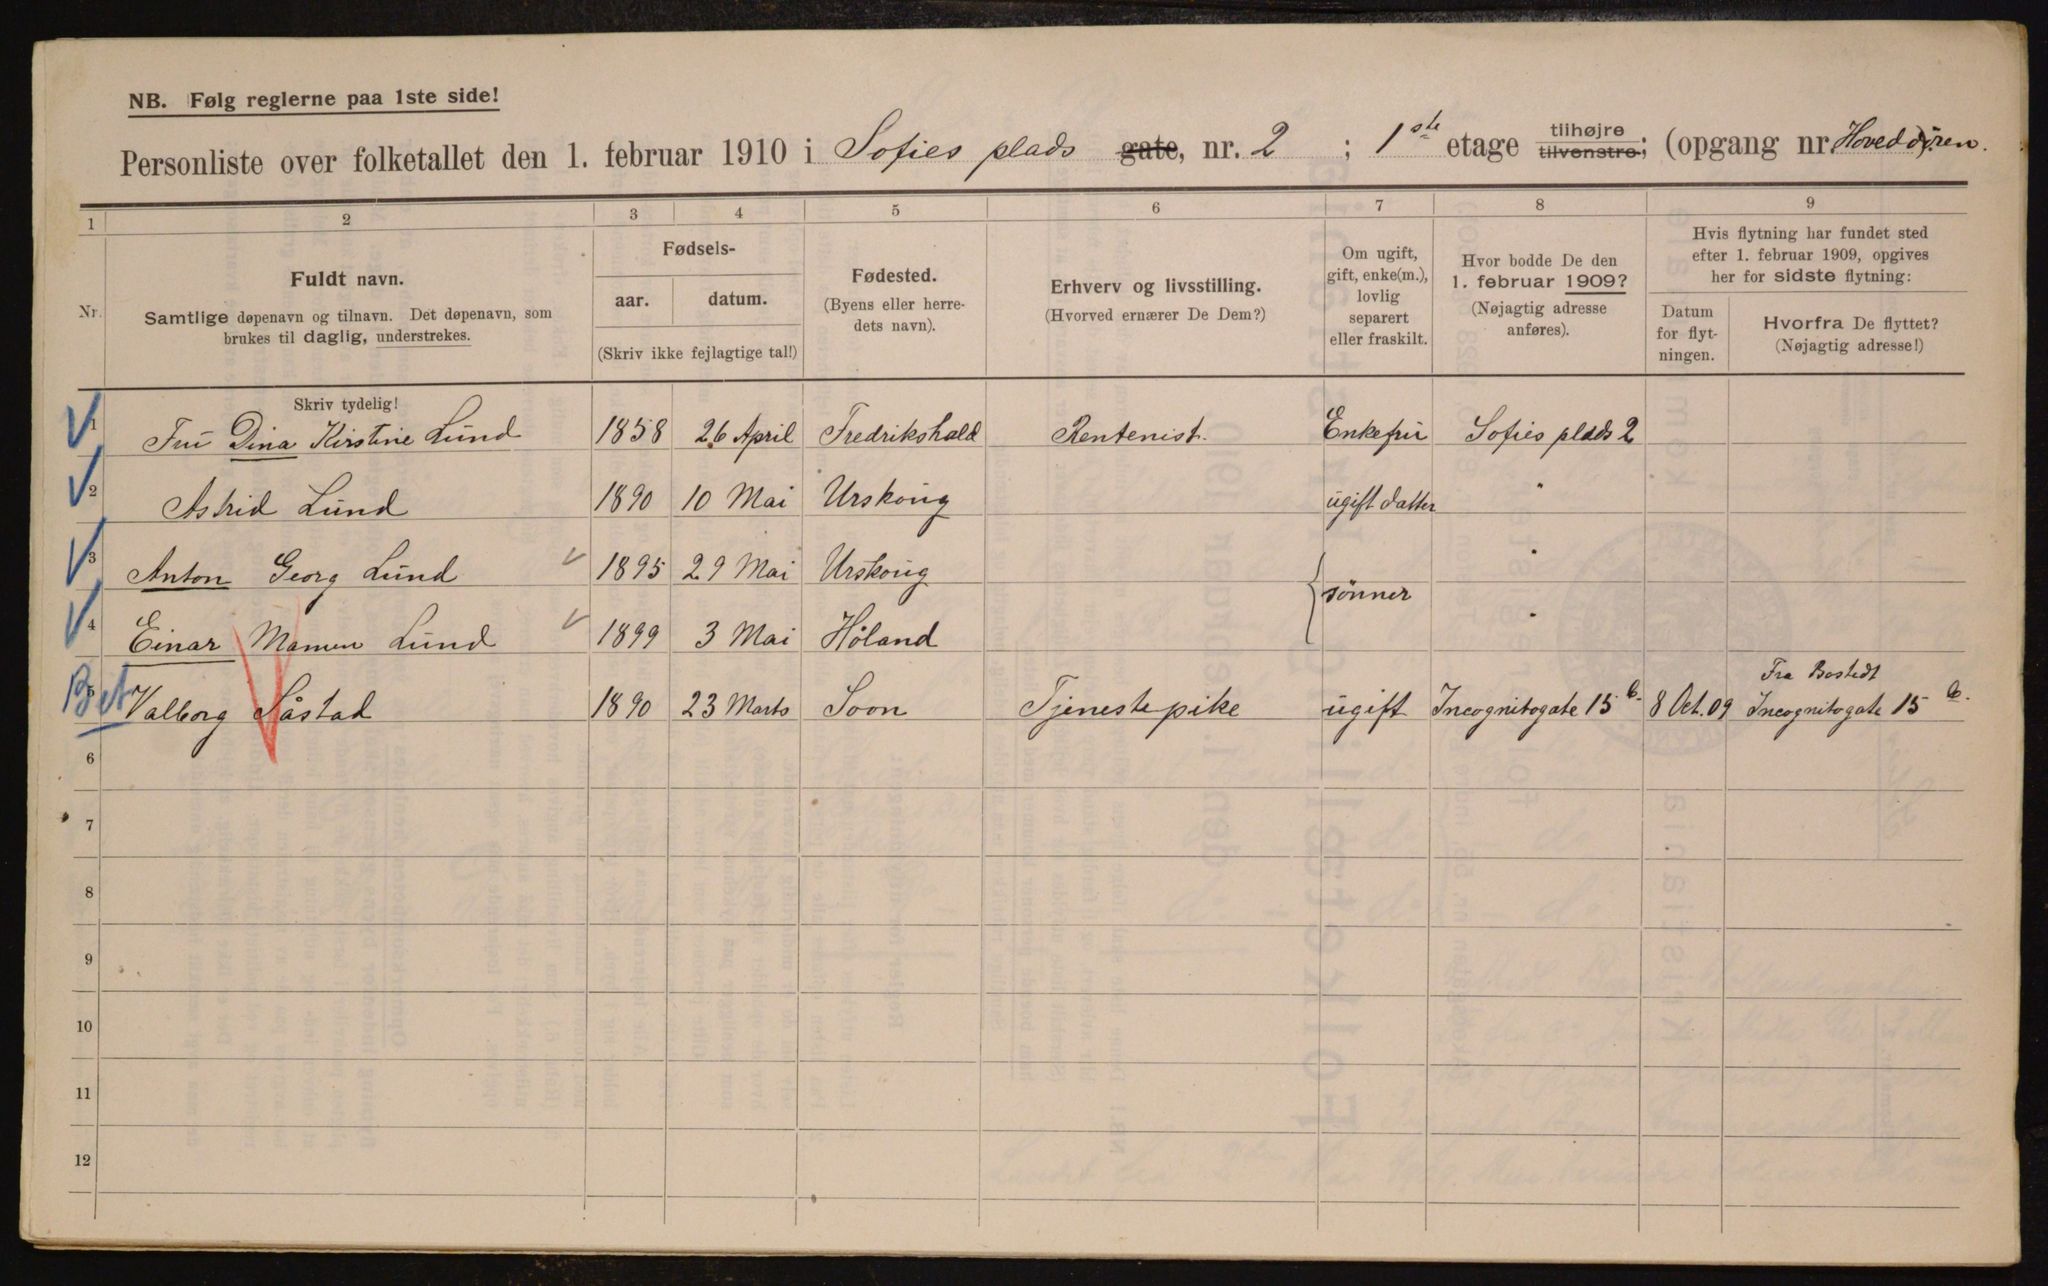 NB. Følg reglerne paa 1ste side!
Personliste over folketallet den 1. februar 1910 i Sofies plads gate, nr. 2 ; 1ste etage tilhøjre tilvenstre; (opgang nr. Hoveddøren.
1 2 3 4 5 6 7 8 9
Nr.
Fuldt navn.
Samtlige døpenavn og tilnavn. Det døpenavn, som
brukes til daglig, understrekes.
Fødsels-
aar. datum.
(Skriv ikke fejlagtige tal!)
Fødested.
(Byens eller herre-
dets navn).
Erhverv og livsstilling.
(Hvorved ernærer De Dem?)
Om ugift,
gift, enke(m.),
lovlig
separert
eller fraskilt.
Hvor bodde De den
1. februar 1909?
(Nøjagtig adresse
anføres).
Hvis flytning har fundet sted
efter 1. februar 1909, opgives
her for sidste flytning:
Datum
for flyt-
ningen.
Hvorfra De flyttet?
(Nøjagtig adresse!)
Skriv tydelig!
1 Fru Dina Kirstine Lund 1858 26 April Fredrikshald Rentenist. Enkefru Sofies plads 2
2 Astrid Lund 1890 10 Mai Urskoug ugift datter "
3 Anton Georg Lund 1895 29 Mai Urskoug "
sønner
4 Einar Mamen Lund 1899 3 Mai Høland "
Fra Bostedt
5 Bet Valborg Såstad 1890 23 Marts Soon Tjenestepike ugift Incognitogate 15 b. 8 Oct. 09 Incognitogate 15 b.
6
7
8
9
10
11
12